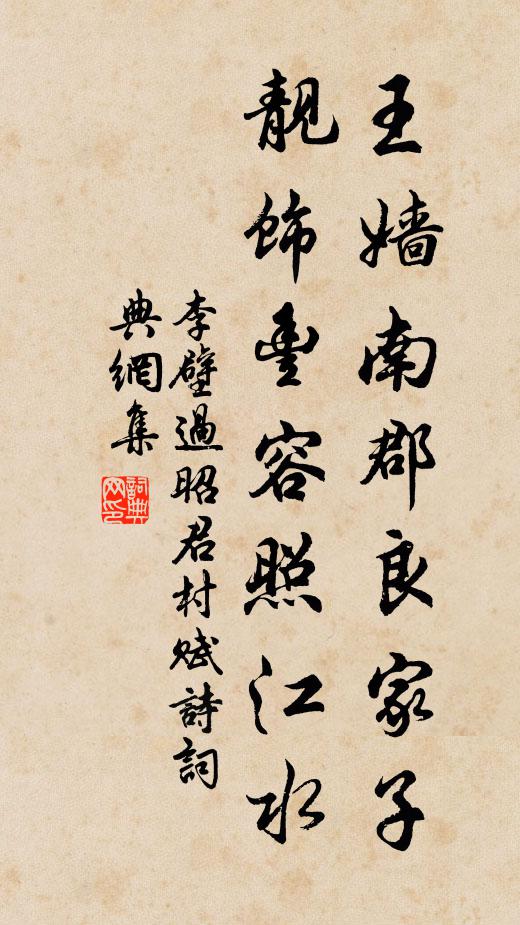 王嬙南郡良家子
靚飾豐容照江水
李壁過昭君村賦詩詞
典網集
詞典網印